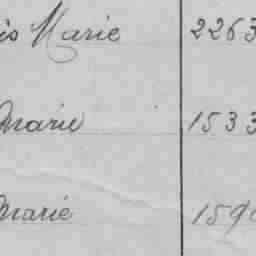 is Marie 2263
Marie 1533
Marie 159